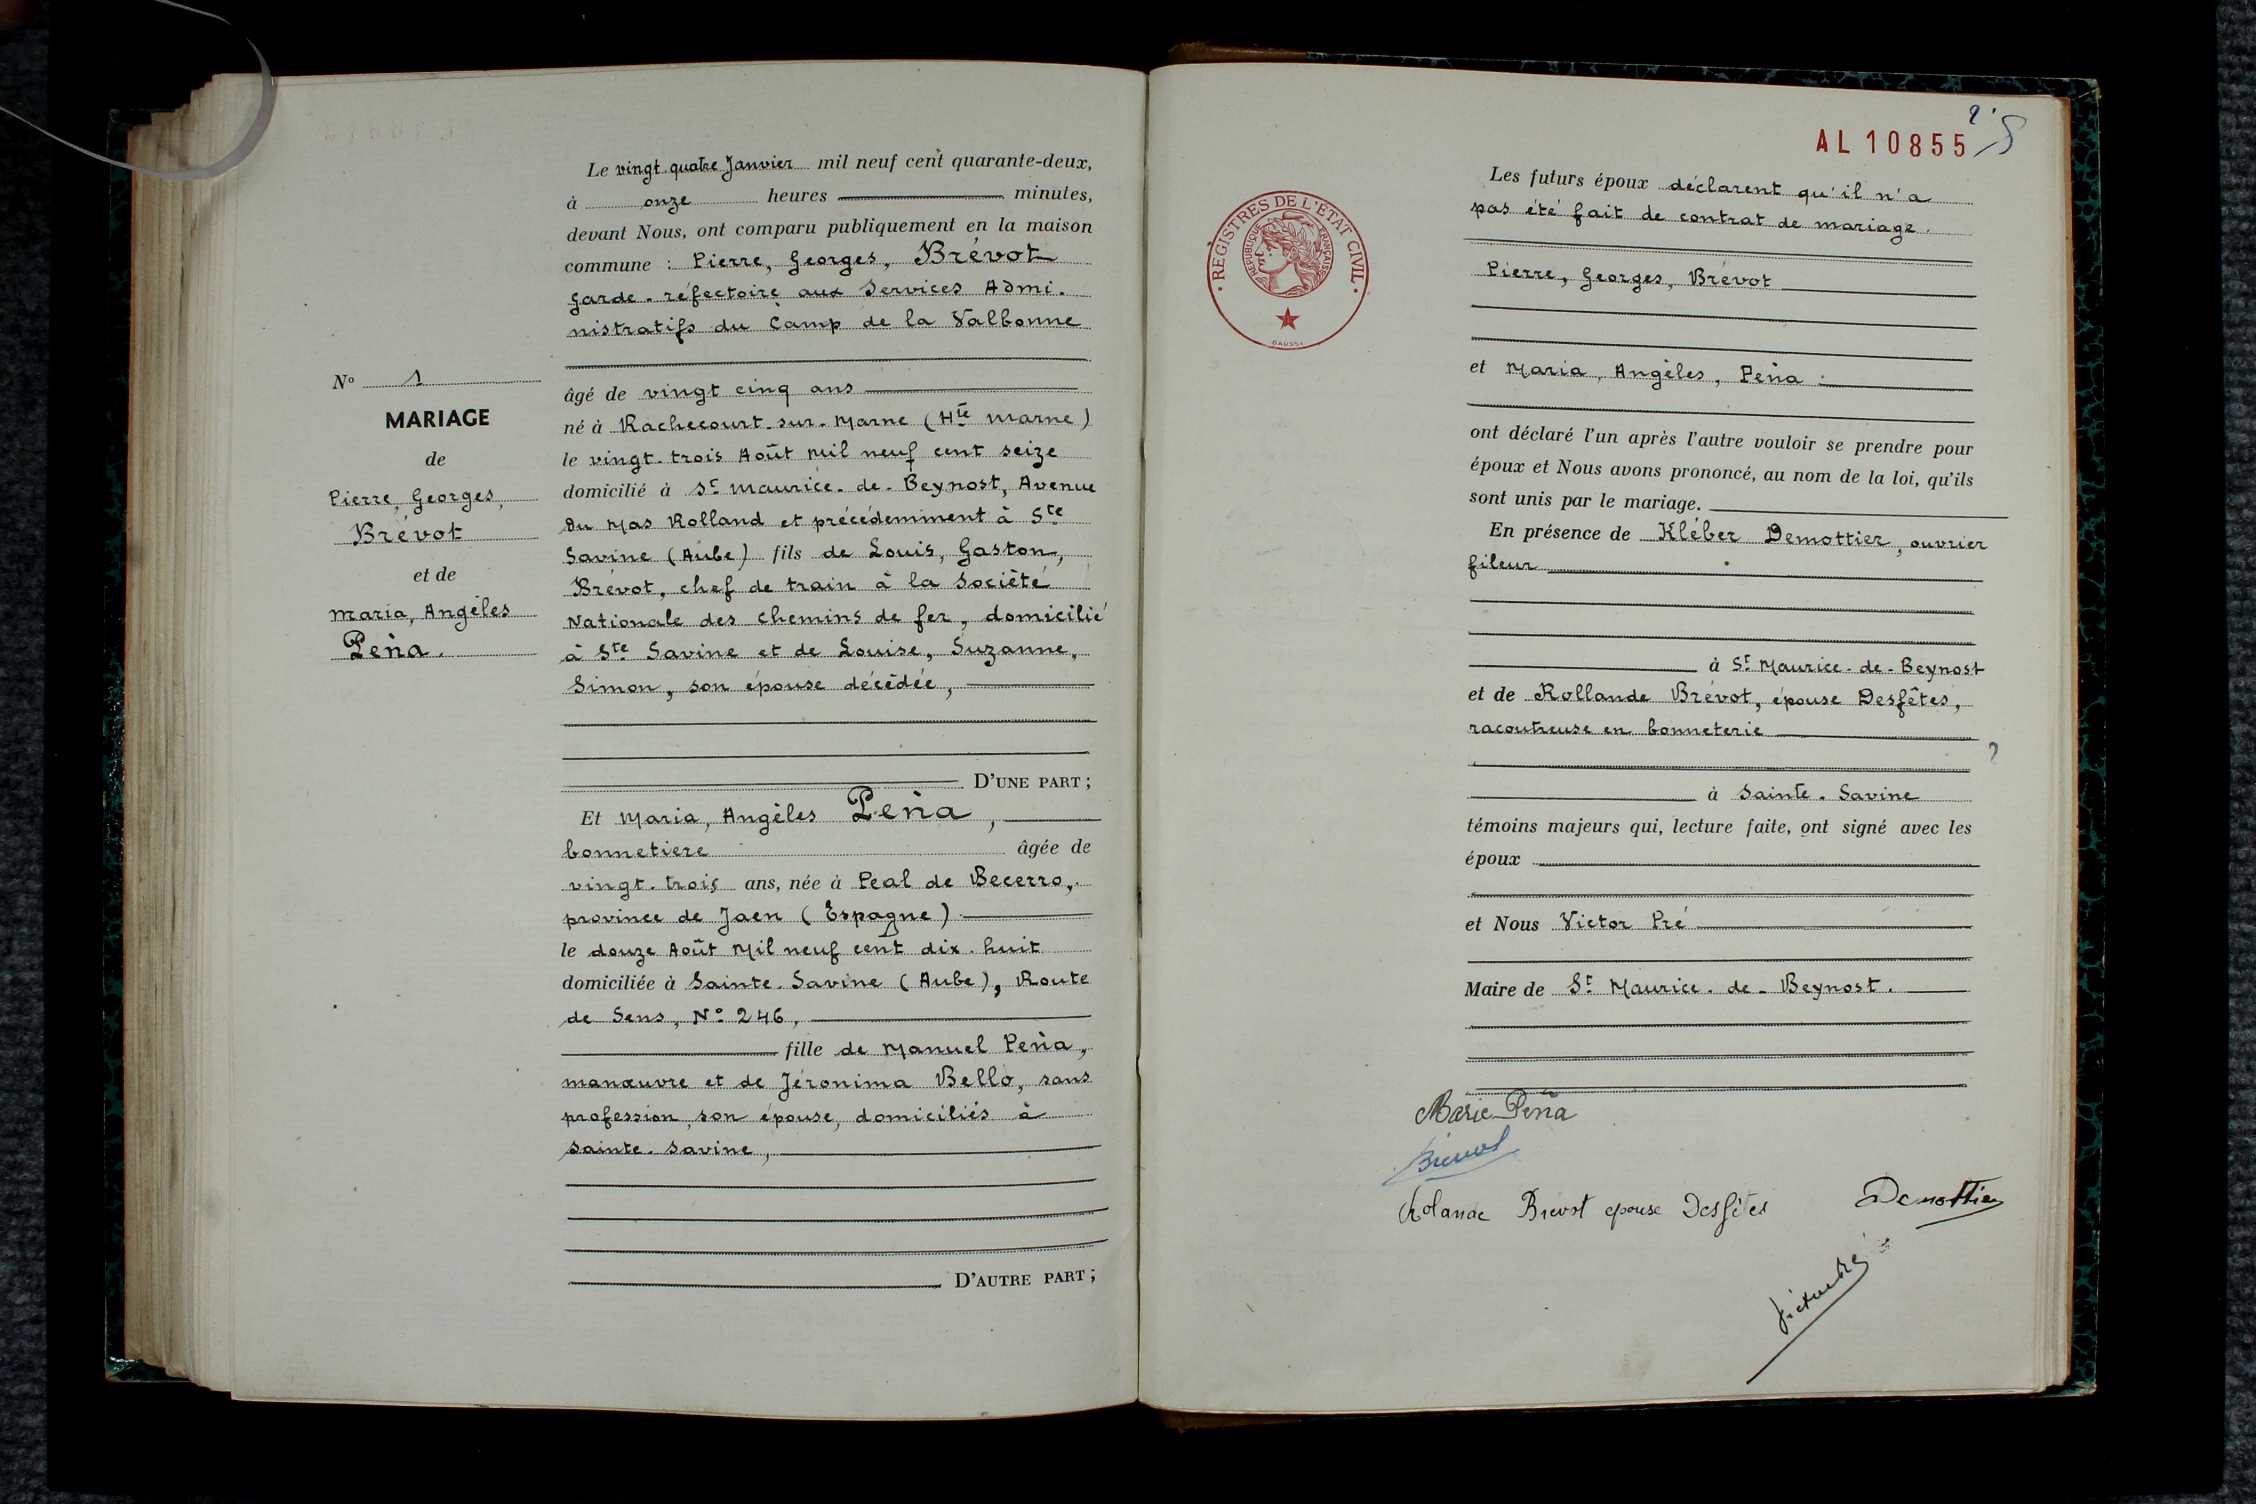 Le vingt-quatre Janvier mil neuf cent quarante-deux,
à onze heures minutes,
devant Nous, ont comparu publiquement en la maison
commune : Pierre, Georges, Brévot
Garde-réfectoire aux Services Admi-
nistratifs du Camp de la Valbonne
No 1
MARIAGE
de
Pierre, Georges,
Brévot
et de
Maria, Angèles
Peña.
âgé de vingt cinq ans
né à Rachecourt-sur-Marne (Hte Marne)
le vingt-trois Août Mil neuf cent seize
domicilié à St Maurice-de-Beynost, Avenue
du Mas Rolland et précédemment à Ste
Savine (Aube) fils de Louis, Gaston,
Brévot, chef de train à la Société
Nationale des Chemins de fer, domicilié
à Ste Savine et de Louise, Suzanne,
Simon, son épouse décédée,
D'UNE PART ;
Et Maria, Angèles Peña,
bonnetiere âgée de
vingt-trois ans, née à Peal de Becerro,
province de Jaen (Espagne)
le douze Août Mil neuf cent dix-huit
domiciliée à Sainte-Savine (Aube), Route
de Sens, No 246,
fille de Manuel Peña,
manœuvre et de Jéronima Bello, sans
profession, son épouse, domiciliés à
Sainte-Savine,
D'AUTRE PART ;
AL 10855
REGISTRES DE L'ETAT CIVIL
REPUBLIQUE FRANÇAISE
Les futurs époux déclarent qu'il n'a
pas été fait de contrat de mariage.
Pierre, Georges, Brévot
et Maria, Angèles, Peña.
ont déclaré l'un après l'autre vouloir se prendre pour
époux et Nous avons prononcé, au nom de la loi, qu'ils
sont unis par le mariage.
En présence de Kléber Demottier, ouvrier
fileur
à St Maurice-de-Beynost
et de Rollande Brévot, épouse Desfêtes,
racoutreuse en bonneterie
à Sainte-Savine
témoins majeurs qui, lecture faite, ont signé avec les
époux
et Nous Victor Pré
Maire de St Maurice-de-Beynost.
Marie Peña
Brévot
Rolande Brevot epouse Desfêtes
Demottier
Victor Pré